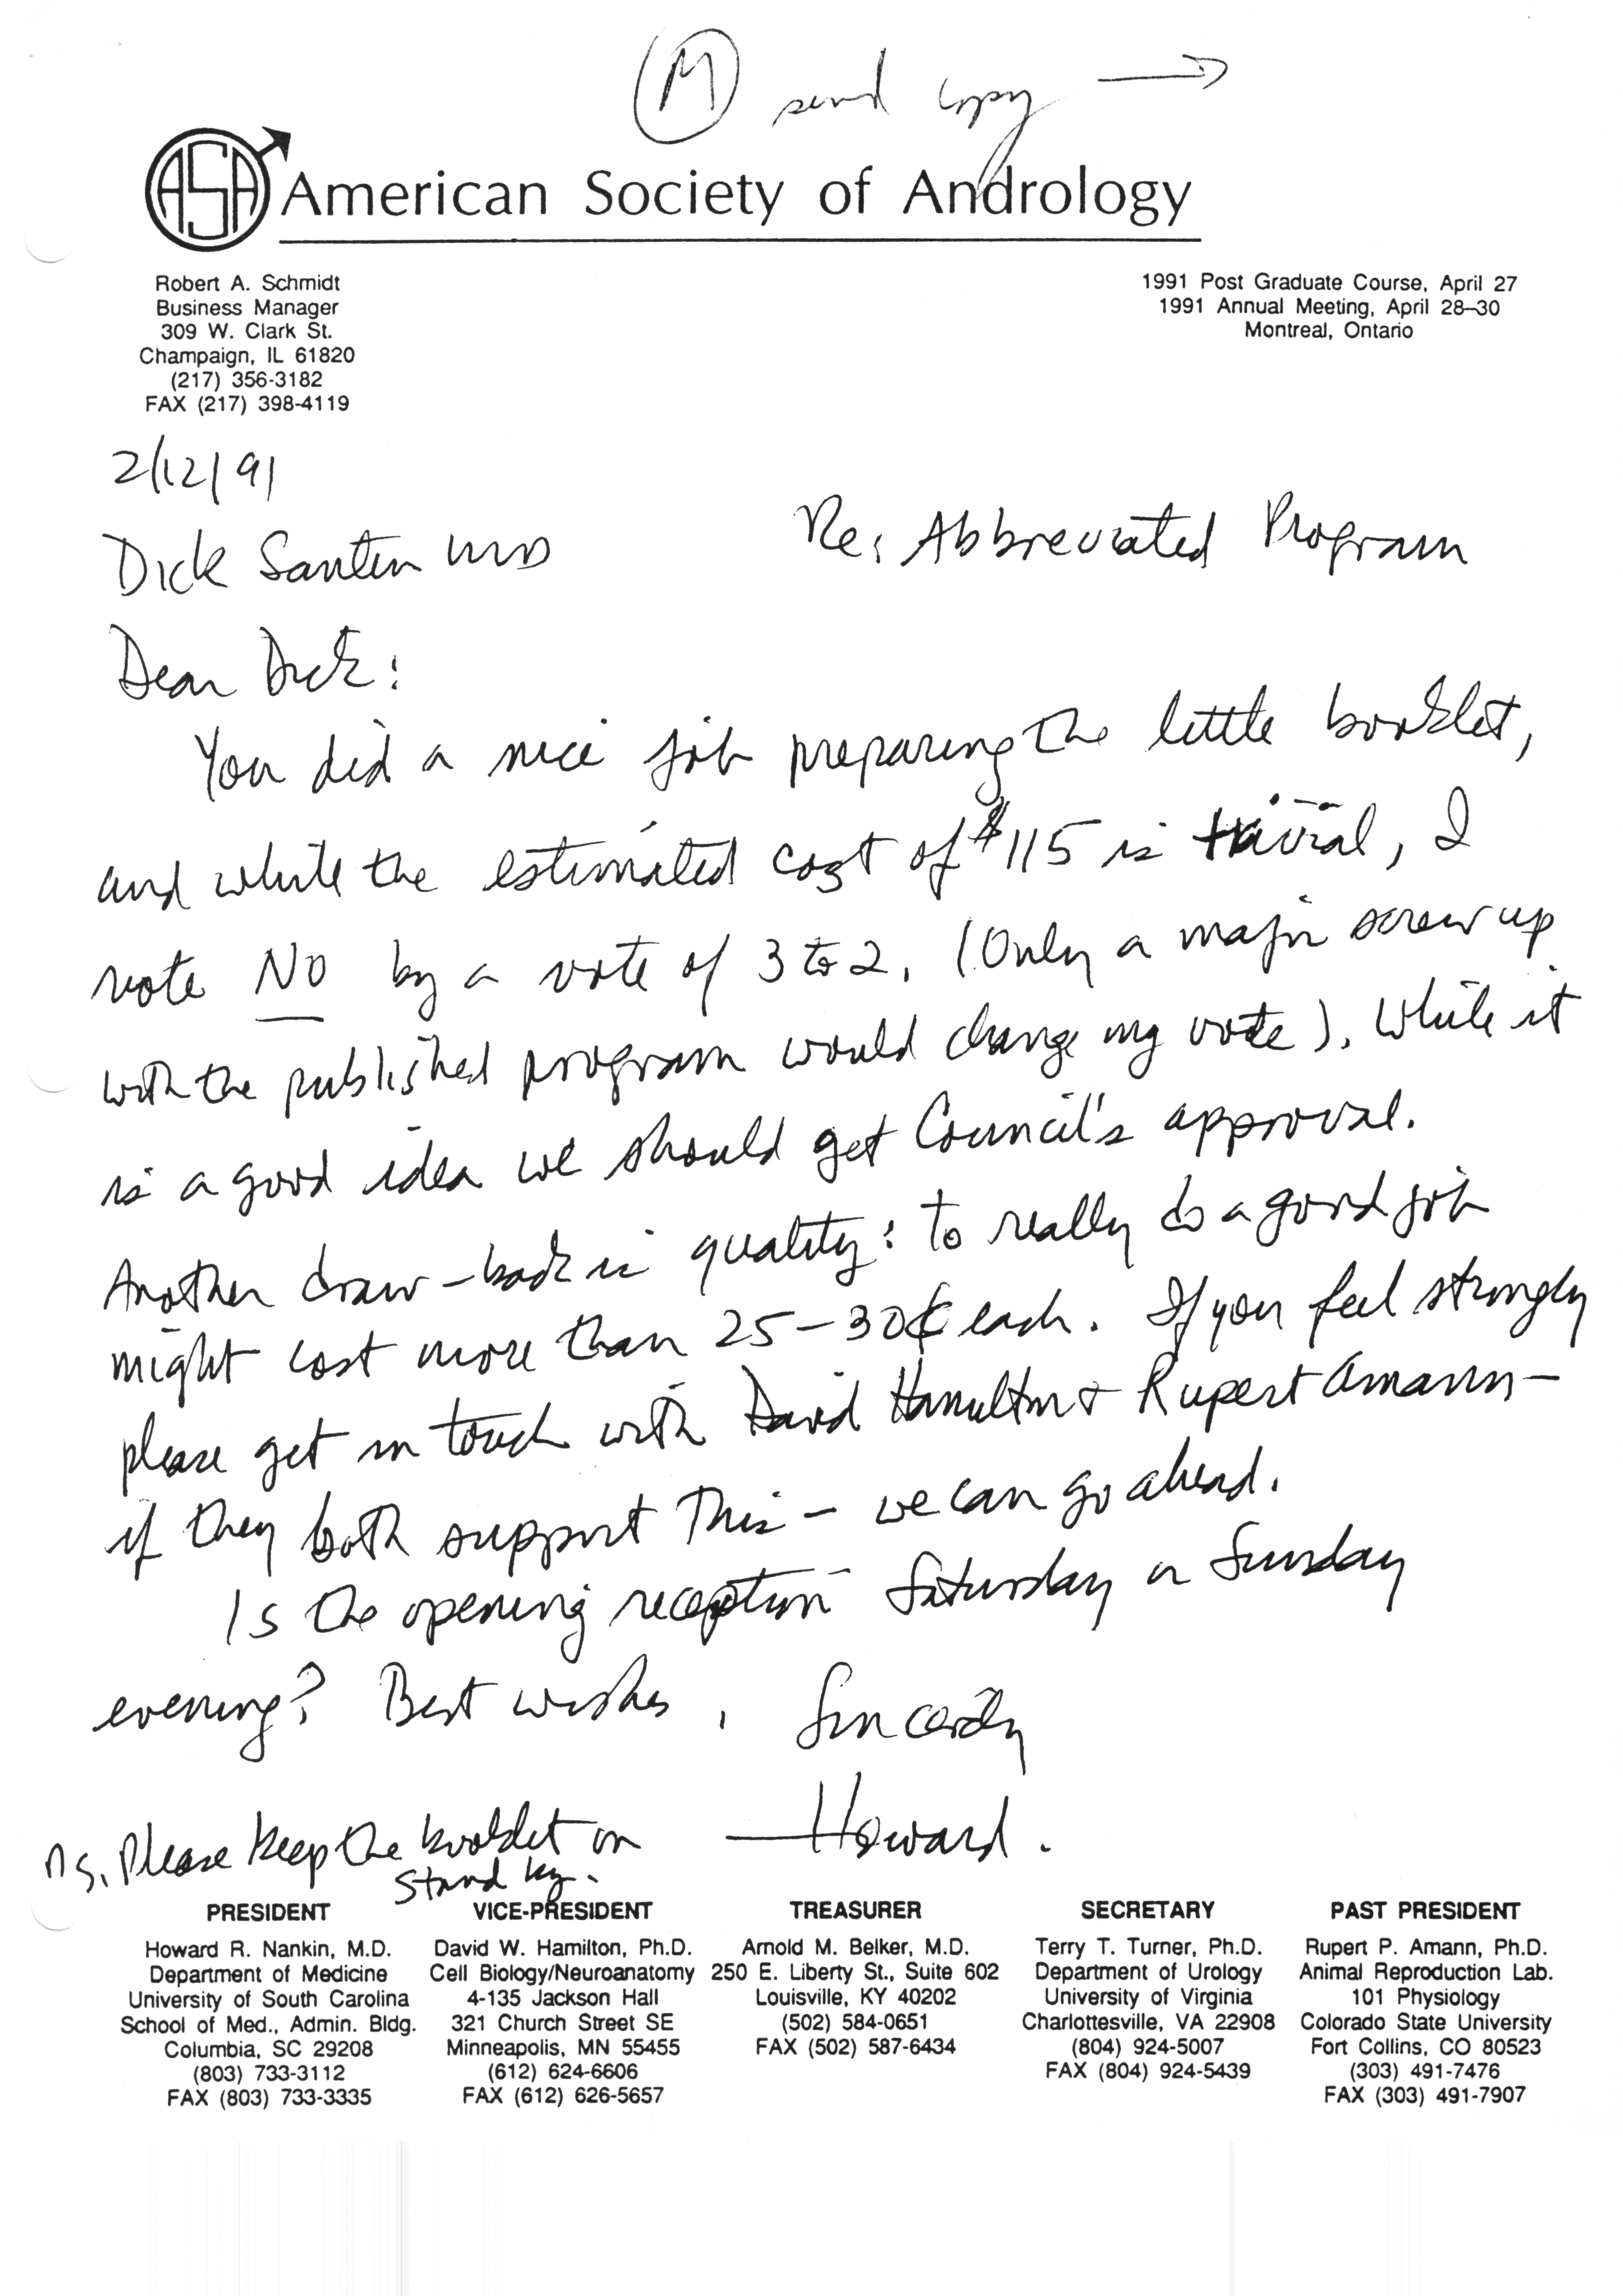 M send copy →
ASA American Society of Andrology
Robert A. Schmidt
Business Manager
309 W. Clark St.
Champaign, IL 61820
(217) 356-3182
FAX (217) 398-4119
1991 Post Graduate Course, April 27
1991 Annual Meeting, April 28–30
Montreal, Ontario
2/12/91
Dick Santen MD
Re: Abbreviated Program
Dear Dick:
You did a nice job preparing the little booklet,
and while the estimated cost of $115 is trivial, I
vote NO by a vote of 3 to 2. (Only a major screw up
with the published program would change my vote). While it
is a good idea we should get Council's approval.
Another draw-back is quality: to really do a good job
might cost more than 25–30¢ each. If you feel strongly
please get in touch with David Hamilton + Rupert Amann –
if they both support this – we can go ahead.
Is the opening reception Saturday or Sunday
evening? Best wishes, Sincerely
Howard.
Ps. Please keep the booklet on
stand by.
PRESIDENT
Howard R. Nankin, M.D.
Department of Medicine
University of South Carolina
School of Med., Admin. Bldg.
Columbia, SC 29208
(803) 733-3112
FAX (803) 733-3335
VICE-PRESIDENT
David W. Hamilton, Ph.D.
Cell Biology/Neuroanatomy
4-135 Jackson Hall
321 Church Street SE
Minneapolis, MN 55455
(612) 624-6606
FAX (612) 626-5657
TREASURER
Arnold M. Belker, M.D.
250 E. Liberty St., Suite 602
Louisville, KY 40202
(502) 584-0651
FAX (502) 587-6434
SECRETARY
Terry T. Turner, Ph.D.
Department of Urology
University of Virginia
Charlottesville, VA 22908
(804) 924-5007
FAX (804) 924-5439
PAST PRESIDENT
Rupert P. Amann, Ph.D.
Animal Reproduction Lab.
101 Physiology
Colorado State University
Fort Collins, CO 80523
(303) 491-7476
FAX (303) 491-7907